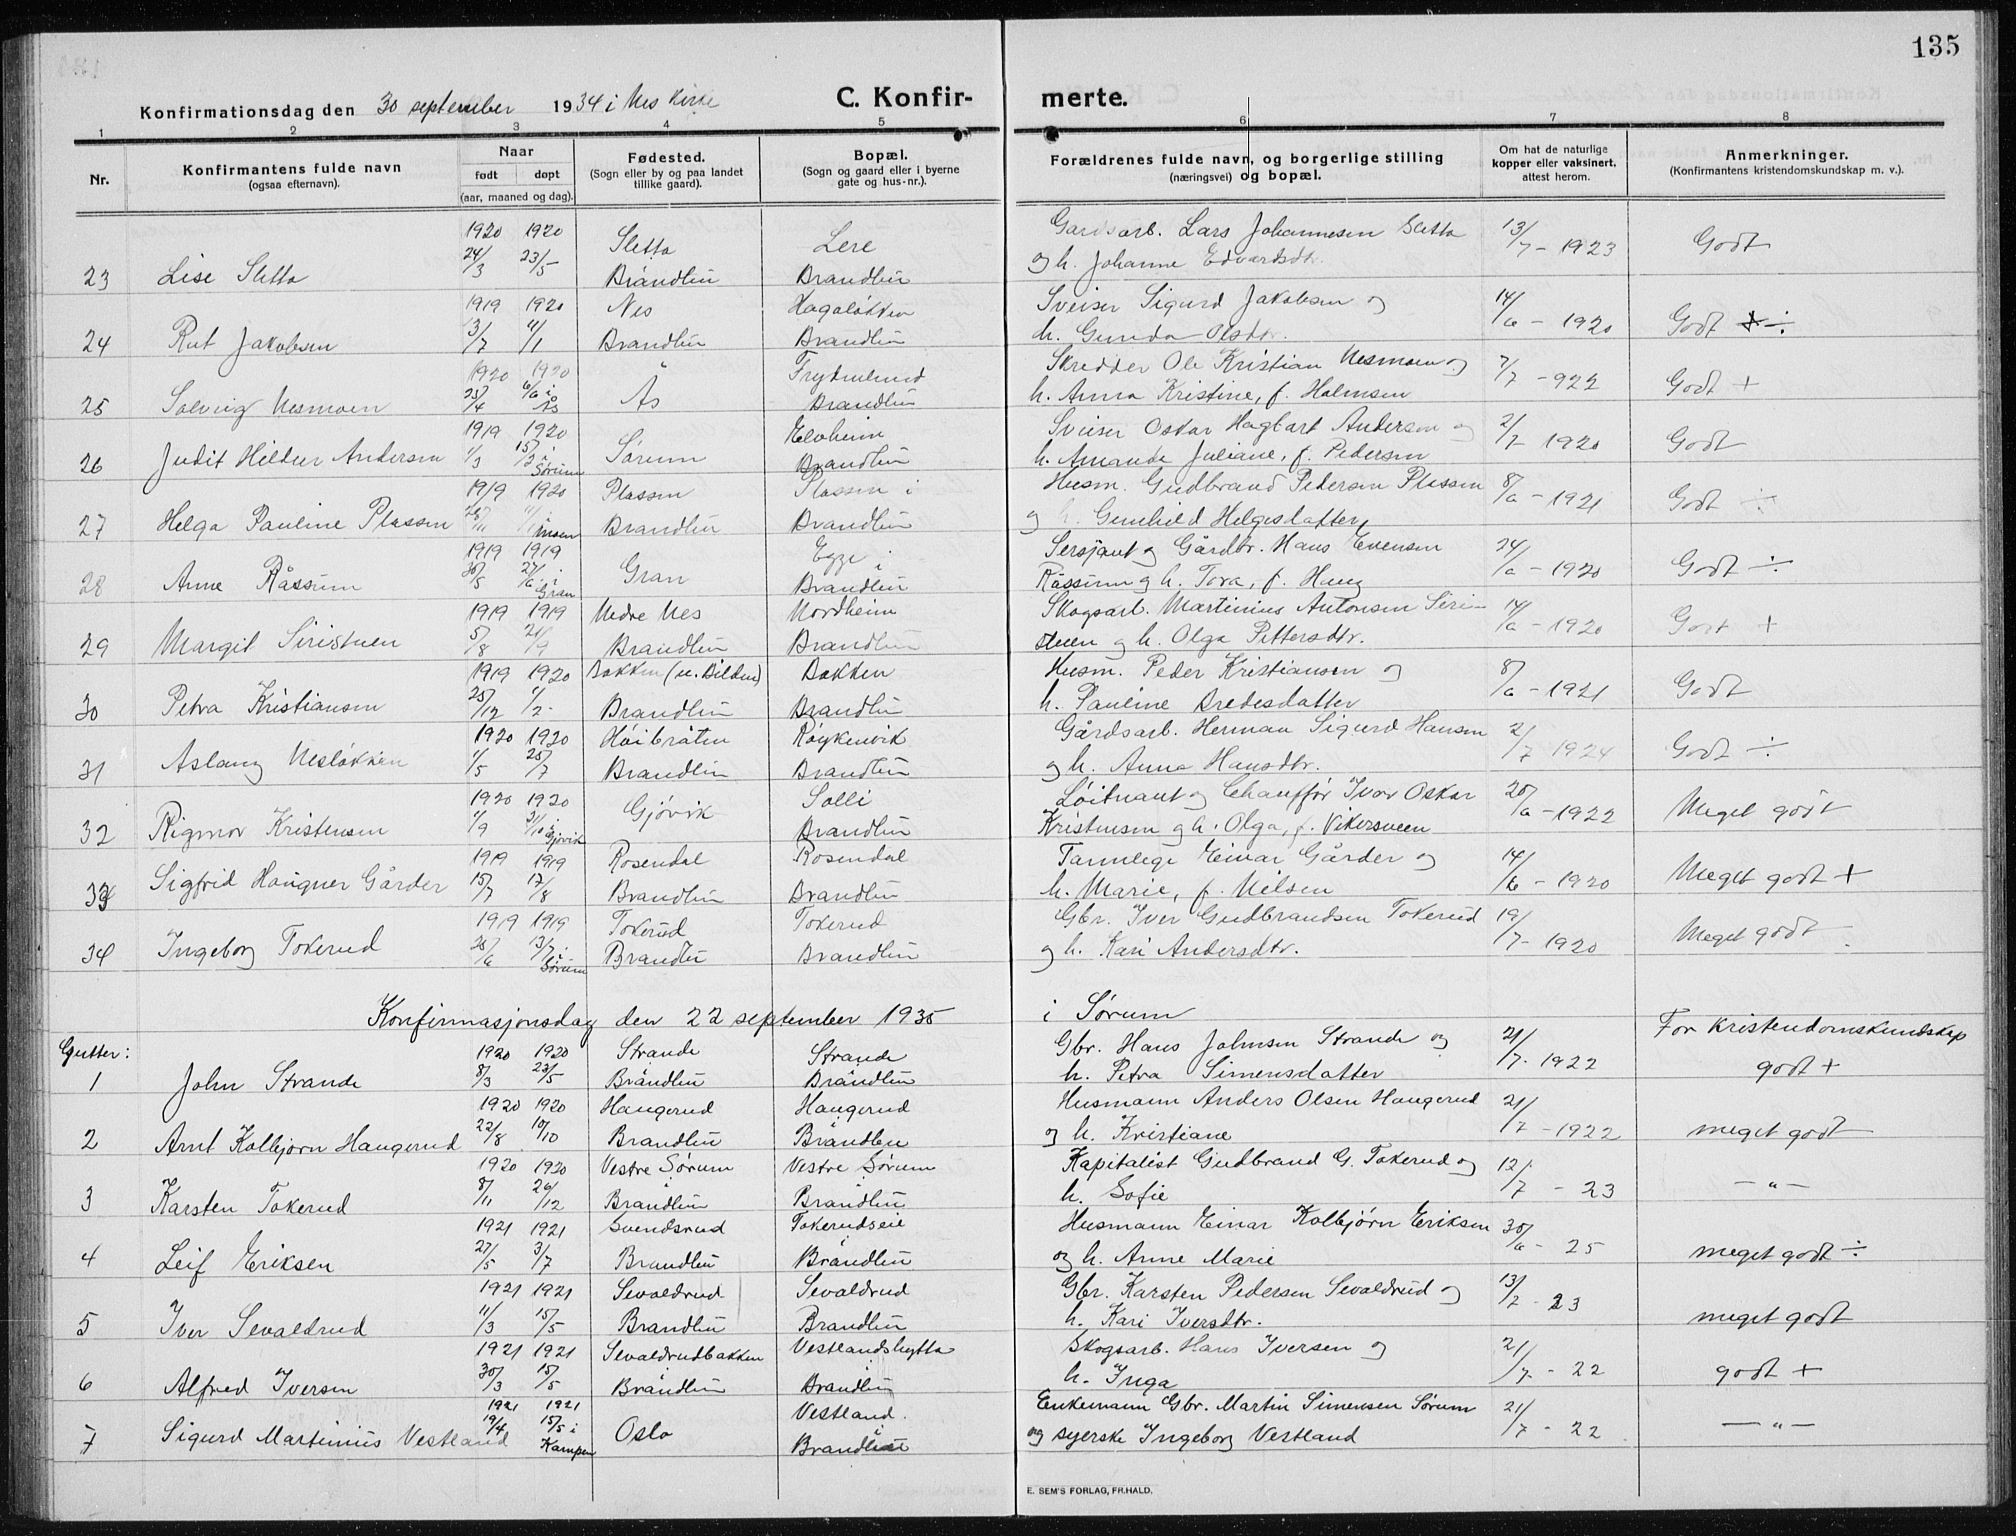 135
Konfirmationsdag den 30 september 1934 i Nes Kirke C. Konfir- merte.
1 2 3 4 5 6 7 8
Nr. Konfirmantens fulde navn (ogsaa efternavn). Naar født døpt (aar, maaned og dag). Fødested. (Sogn eller by og paa landet tillike gaard). Bopæl. (Sogn og gaard eller i byerne gate og hus-nr.). Forældrenes fulde navn, og borgerlige stilling (næringsvei) og bopæl. Om hat de naturlige kopper eller vaksinert. attest herom. Anmerkninger. (Konfirmantens kristendomskundskap m. v.).
1920 1920 Sletta Lere Gardsarb. Lars Johannesen Sletta 13/7 - 1923 Godt
23 Lise Sletta 24/3 23/5 Brandbu Brandbu og h. Johanne Edvardsdtr.
1919 1920 Nes Hagaløkken Sveiser Sigurd Jakobsen og 14/6 - 1920
24 Rut Jakobsen 3/7 4/1 Brandbu Brandbu h. Gunda Olsdtr. Godt ÷
1920 1920 Ås Frydenlund Skredder Ole Kristian Nesmoen og 7/7 - 922 Godt +
25 Solveig Nesmoen 25/4 6/6 i Ås Brandbu h. Anna Kristine, f. Holmsen
1919 1920 Sørum Elvheim Sveiser Oskar Hagbart Andersen og 2/7 - 1920 Godt
26 Judit Hildur Andersen 1/3 15/2 i Sørum Brandbu h. Amanda Juliane, f. Pedersen
1919 1920 Plassen Plassen i Husm. Gudbrand Pedersen Plassen 8/6 - 1921 Godt ÷
27 Helga Pauline Plassen 28/11 Brandbu Brandbu og h. Gunhild Helgesdatter
1919 1919 Gran Egge i Sersjant og Gårdbr. Hans Evensen 24/6 - 1920 Godt ÷
28 Anne Råssum 30/5 27/6 i Gran Brandbu Råssum og h. Tora, f. Haug
1919 1919 Nedre Nes Nordheim Skogsarb. Martinius Antonsen Siri- 14/6 - 1920 Godt +
29 Margit Siristuen 5/8 21/9 Brandbu Brandbu stuen og h. Olga Pettersdtr.
1919 1920 Bakken (u. Bilden) Bakken Husm. Peder Kristiansen og 8/6 - 1921 Godt
30 Petra Kristiansen 25/12 1/2 Brandbu Brandbu h. Pauline Bredesdatter
1920 1920 Høibråten Røykenvik Gårdsarb. Herman Sigurd Hansen 2/7 1924 Godt ÷
31 Aslaug Nesløkken 1/5 25/7 Brandbu Brandbu og h. Anna Hansdtr.
1920 1920 Gjøvik Solli Løitnant og Chauffør Ivar Oskar 20/6 - 1922 Meget godt
32 Rigmor Kristensen 1/9 31/10 i Gjøvik Brandbu Kristensen og h. Olga, f. Vikersveen
1919 1919 Rosendal Rosendal Tannlege Einar Gårder og 14/6 - 1920 Meget godt +
33 Sigfrid Haugner Gårder 15/7 17/8 Brandbu Brandbu h. Marie, f. Nilsen
1919 1919 Tokerud Tokerud Gbr. Iver Gudbrandsen Tokerud 19/7 - 1920 Meget godt
34 Ingeborg Tokerud 25/6 13/7 i Sørum Brandbu Brandbu og h. Kari Andersdtr.
Konfirmasjonsdag den 22 september 1935 i Sørum
For kristendomskundskap
Gutter: 1920 1920 Strande Strande Gbr. Hans Johnsen Strande og 21/7 - 1922
1 John Strande 8/3 23/5 Brandbu Brandbu h. Petra Simensdatter godt +
1920 1920 Haugerud Haugerud Husmann Anders Olsen Haugerud 21/7 - 1922
2 Arnt Kolbjørn Haugerud 22/8 10/10 Brandbu Brandbu og h. Kristiane meget godt
1920 1920 Vestre Sørum Vestre Sørum Kapitalist Gudbrand G. Tokerud og 12/7 - 23
3 Karsten Tokerud 8/11 26/12 Brandbu Brandbu h. Sofie — " —
1921 1921 Svendsrud Tokerudseie Husmann Einar Kolbjørn Eriksen 30/6 - 25
4 Leif Eriksen 27/5 3/7 Brandbu Brandbu og h. Anne Marie meget godt ÷
1921 1921 Sevaldrud Sevaldrud Gbr. Karsten Pedersen Sevaldrud og 13/7 - 23
5 Iver Sevaldrud 11/3 15/5 Brandbu Brandbu h. Kari Iversdtr. meget godt
1921 1921 Sevaldrudbakken Vestlandshytta Skogsarb. Hans Iversen og 21/7 - 22
6 Alfred Iversen 30/3 15/5 Brandbu Brandbu h. Inga godt +
1921 1921 Oslo Vestland. Enkemann Gbr. Martin Simensen Sørum 21/7 - 22
7 Sigurd Martinius Vestland 19/4 15/5 i Kampen Brandbu og syerske Ingeborg Vestland — " —
E. SEM'S FORLAG, FR.HALD.